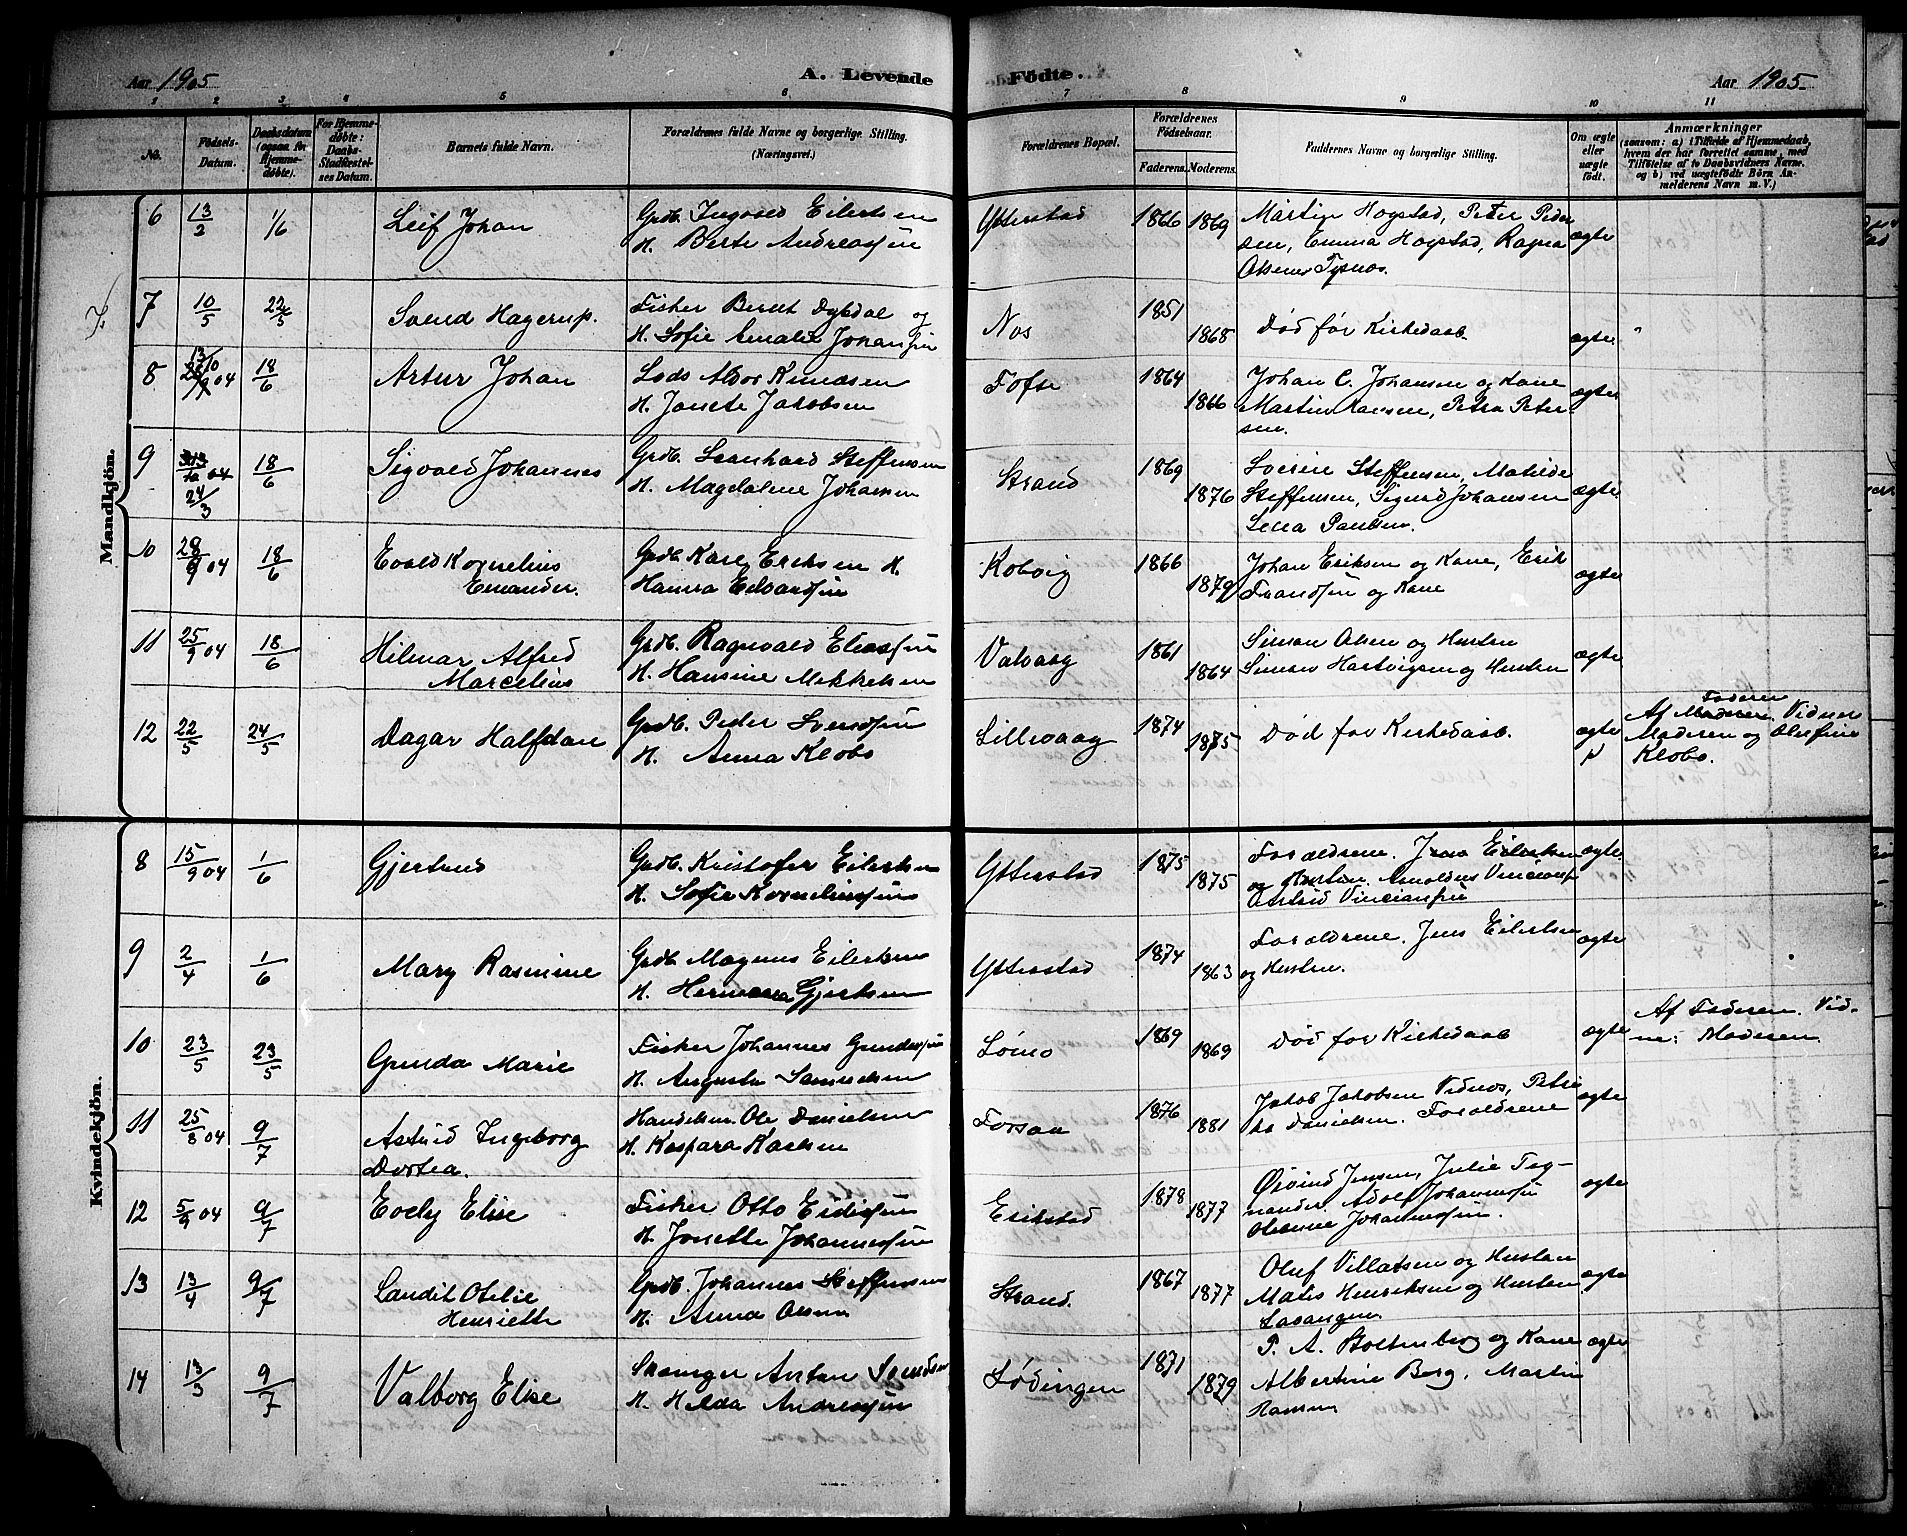 Aar 1905
A. Levende
Födte.
Aar 1905
1 2 3 4 5 6 7 8 9 10 11
No.
Födsels-
Datum.
Daabsdatum
(ogsaa for
Hjemme-
døbte).
For Hjemme-
døbte:
Daabs-
Stadfæstel-
ses Datum.
Barnets fulde Navn.
Forældrenes fulde Navne og borgerlige Stilling.
(Næringsvei.)
Forældrenes Bopæl.
Forældrenes
Födselsaar.
Faderens. Moderens.
Faddernes Navne og borgerlige Stilling.
Om ægte
eller
uægte
födt.
Anmærkninger
(saasom: a) i Tilfælde af Hjemmedaab,
hvem der har forrettet samme, med
Tilföielse af to Daabsvidners Navne.
og b) ved uægtefödte Börn An-
melderens Navn m. V.)
Mandkjön.
6 13/2 1/6 Leif Johan
Grdb. Ingvald Eilertsen
H. Berte Andreassen
Ytterstad 1866 1869
Martin Hogstad, Peter Peder
sen, Emma Hogstad, Ragna
Olsen Tysnes.
ægte
7 10/5 22/5 Svend Hagerup.
Fisker Berut Dybdal og
H. Sofie Amalie Johansen
Nos 1851 1868 Død før Kirkedaab ægte
8 13/10 04 18/6 Artur Johan
Lods Aldor Knudsen
H. Janete Jakobsen
Tofte 1864 1866
Johan C. Johansen og Kone
Martin Hansen, Petra Peter-
sen.
ægte
9 24/3 18/6 Sigvald Johannes
Grdb. Leonhard Steffensen
H. Magdalene Johansen
Strand 1869 1876
Sverin Steffensen, Matilde
Steffensen, Sigurd Johansen
Lena Paulsen.
ægte
10 28/9 04 18/6 Evald Kornelius
Emander.
Grdb. Karl Eriksen H.
Hanna Edvardsen
Kobvig 1866 1879
Johan Eriksen og Kone, Erik
Frandsen og Kone
ægte
11 25/9 04 18/6 Hilmar Alfred
Marcelius
Grdb. Ragnvald Eliassen
H. Hansine Mikkelsen
Valvaag 1861 1864
Simon Olsen og Hustru
Simon Hartvigsen og Hustru
ægte
12 22/5 24/5 Dagar Halfdan
Grdb. Peder Svendsen
H. Anna Klobo
Lillevaag 1874 1875 Død før Kirkedaab. ægte
Faderen
Af Moderen. Vidner
Moderen og Olufine
Klobo.
Kvindekjön.
8 15/9 04 1/6 Gjertrud
Grdb. Kristofer Eilertsen
H. Sofie Korneliussen
Ytterstad 1875 1875
Forældrene. Jens Eilertsen
og Hustru. Arnoldus Vinciansen
Astrid Vinciansen
ægte
9 2/4 1/6 Mary Rasmine
Grdb. Magnus Eilertsen
H. Hermana Gjertsen
Ytterstad 1874 1863
Forældrene. Jens Eilertsen
og Hustru.
ægte
10 23/5 23/5 Gunda Marie
Fisker Johannes Gundersen
H. Augusta Samuelsen
Lømo 1869 1869 Død før Kirkedaab ægte
Af Faderen. Vid-
ne: Moderen.
11 25/8 04 9/7 Astrid Ingeborg
Dortea.
Handelsm. Ole Danielsen
H. Kaspara Karlsen
Forsaa 1876 1881
Jakob Jakobsen Vidnes, Petri
ka Danielsen. Forældrene
ægte
12 5/9 04 9/7 Evely Elise
Fisker Otto Eidissen
H. Jonette Johannessen
Erikstad 1878 1877
Øivind Jensen, Julie Teg-
nander, Adolf Johannessen
Oleanne Johannessen.
ægte
13 13/4 9/7 Sandit Otelie
Henriette
Grdb. Johannes Steffensen
H. Anna Olsen
Strand. 1867 1877
Oluf Villatsen og Hustru
Mates Henriksen og Hustru
Lavangen.
ægte
14 13/3 9/7 Valborg Elise
Skomager Anton Svendsen
H. Hilda Andreassen
Lødingen 1871 1879
P. A. Boltenberg og Kone
Albertine Berg. Martin
Hansen
ægte